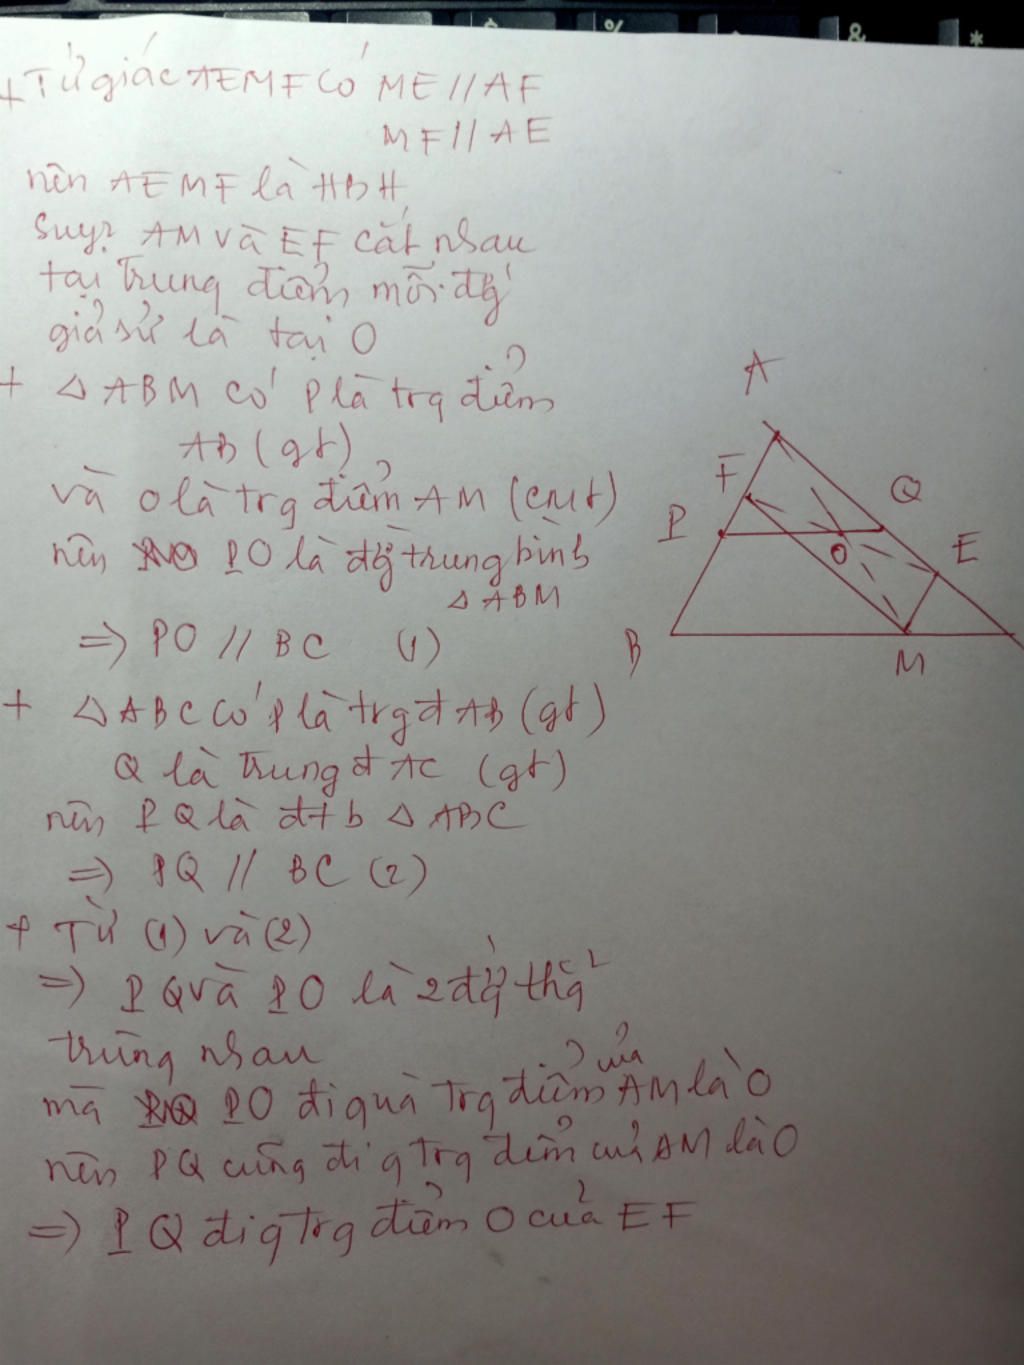 + Tứ giác AEMF có ME // AF
MF // AE
nên AEMF là HBH
Suy? AM và EF cắt nhau
tại trung điểm mỗi đg
giả sử là tại O
+ △ ABM có P là trg điểm
AB (gt)
và O là trg điểm AM (cmt)
nên PO là đg trung bình
△ ABM
=> PO // BC (1)
+ △ ABC có P là trg đ AB (gt)
Q là trung đ AC (gt)
nên PQ là đtb △ ABC
=> PQ // BC (2)
+ Từ (1) và (2)
=> PQ và PO là 2 đg thg
trùng nhau
mà PO đi qua trg điểm của AM là O
nên PQ cũng đi q trg điểm của AM là O
=> PQ đi q trg điểm O của EF
A
F
Q
P
E
O
B
M
&
%
*